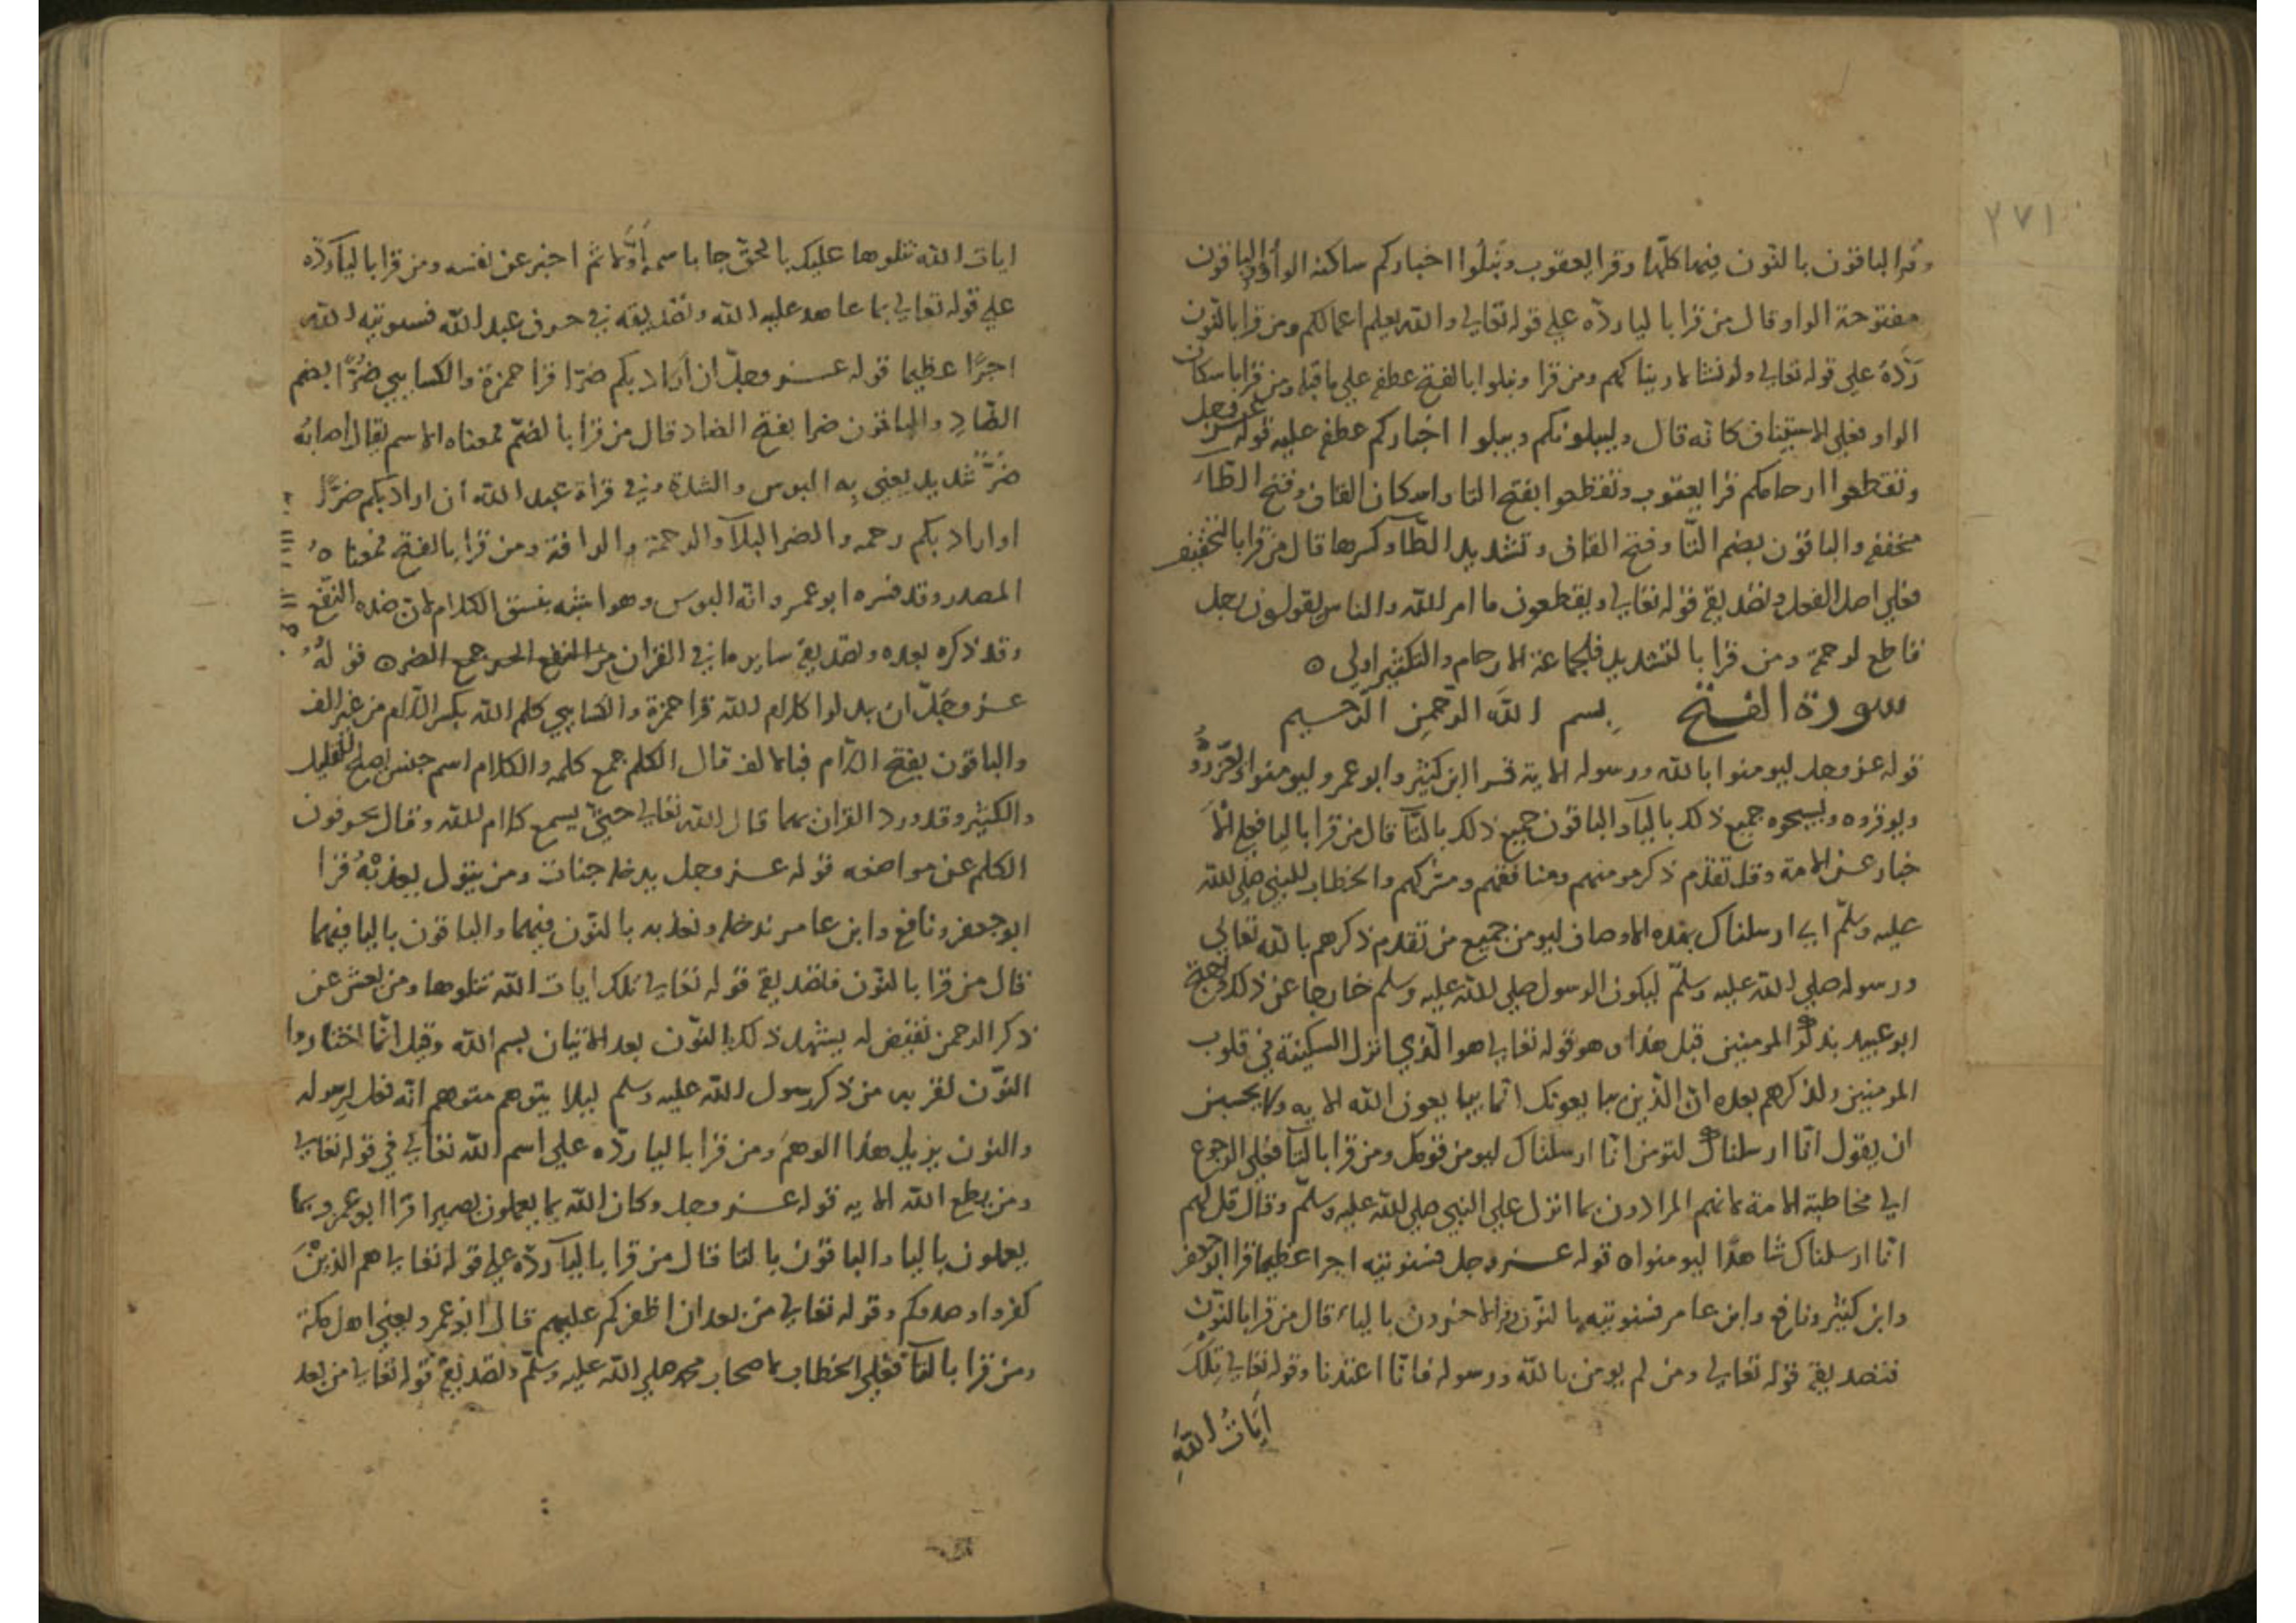 ٢٧١
وقرا الباقون بالنون فيها كلّها وقرا يعقوب ونَبلُوا اخباركم ساكنة الواو والباقون
مفتوحة الواو وقال من قرا باليا ردّه علي قوله تعالي والله يعلم اعمالكم ومن قرا بالنون
رَدَّهُ علي قوله تعالي ولو نشا لاريناكهم ومن قرا ونبلوا بالفتح عطفه علي ما قبله ومن قرا باسكان
الواو فعلي الاستيناف كانه قال وليبلونكم ويبلوا اخباركم عطف عليه قوله عز وجل
وتقطعوا ارحامكم قرا يعقوب وتقطعوا بفتح التا واسكان القاف وفتح الطاء
مخففه والباقون بضم التّا وفتح القاف وتشديد الطّا وكسرها قال من قرا بالتخفيف
فعلي اصل الفعل وتصديقه قوله تعالي ويقطعون ما امر الله والناس يقولون رجل
قاطع لرحمه ومن قرا بالتشديد فلجماعة الارحام والتكثير اولي ه
سورة الفتح بسم الله الرّحمن الرّحيم
قوله عز وجل ليومنوا بالله ورسوله الاية قرا ابن كثير وابو عمرو ليومنوا ويعزّروُه
ويوقروه ويسبحوه جميع ذلك باليا والباقون جميع ذلك بالتّا قال من قرا باليا فعلي الاَ
خبار عن الامة وقد تقدم ذكر مومنهم ومنافقهم ومشركهم والخطاب للنبي صلي الله
عليه وسلّم اي ارسلناك بهذه الاوصاف ليومن جميع من تقدم ذكرهم بالله تعالي
ورسوله صلي الله عليه وسلّم ليكون الرسول صلي الله عليه وسلم خارجا عن ذلك وحجة
ابو عبيد بذكر المومنين قبل هذا وهو قوله تعالي هو الّذي انزل السكينة في قلوب
المومنين ولذكرهم بعده انّ الّذين يبايعونك انّما يبايعون الله الايه ولا يحسن
ان يقول انّا ارسلناك لتومن انّا ارسلناك ليومن قومك ومن قرا بالتّا فعلي الرجوع
الي مخاطبة الامة لانهم المرادون بما انزل علي النبي صلي الله عليه وسلّم وقال قل لهم
انّا ارسلناك شاهدًا ليومنوا ه قوله عز وجل فسنوتيه اجرا عظيما قرا ابو جعفر
وابن كثير ونافع وابن عامر فسنوتيه بالنّون والاخرون بالياء قال من قرا بالنّون
فتصديقه قوله تعالي ومن لم يومن بالله ورسوله فانّا اعتدنا وقوله تعالي تِلْكَ
اَيَاتُ اللهِ
ايات الله نتلوها عليك بالحق جا باسمه اَوَّلا ثم اخبر عن نفسه ومن قرا باليا ردّه
علي قوله تعالي بما عاهد عليه الله وتصديقه في حرف عبد الله فسيوتيه الله
اجرًا عظيما قوله عز وجلّ ان اَراد بكم ضرّا قرا حمزة والكسايي ضُرًّا بضم
الضّادِ والباقون ضرا بفتح الضاد قال من قرا بالضّم فمعناه الاسم يقال اصابه
ضرٌّ شديد يعني به البوس والشدة وفي قراة عبد الله ان اراد بكم ضرًّا
او اراد بكم رحمه والضر البلآ والرحمة والرافة ومن قرا بالفتح فمعناه
المصدر وقد فسره ابو عمرو انّه البوس وهو اشبه بنسق الكلام لانّ ضده النّفع
وقد ذكره بعده وتصديقه ساير ما في القران من النفع الضر ه قولهُ
عز وجَلّ ان يبدلوا كلام الله قرا حمزة والكسايي كلم الله بكسر اللام من غير الف
والباقون بفتح اللّام فبالالف قال الكلم جمع كلمه والكلام اسم جنس يصلح للقليل
والكثير وقد ورد القران بهما قال الله تعالي حتّي يسمع كلام الله وقال يحرفون
الكلم عن مواضعه قوله عز وجل يدخله جنات ومن يتول يعذبْهُ قرا
ابو جعفر ونافع وابن عامر ندخله ونعذبه بالنّون فيهما والباقون باليا فيهما
قال من قرا بالنّون فتصديقه قوله تعالي تلك ايات الله نتلوها ومن يعش عن
ذكر الرحمن نقيض له يشهد ذلك بالنّون بعد الاتيان بسم الله وقيل انّما اختاروا
النّون لقربه من ذكر رسول الله عليه وسلم ليلا يتوهم متوهم انّه فعل لرسوله
والنون يزيل هذا الوهم ومن قرا باليا ردّه علي اسم الله تعالي في قوله تعالي
ومن يطع الله الايه قوله عز وجل وكان الله بما يعملون بصيرا قرا ابو عمرو بما
يعملون باليا والباقون بالتا قال من قرا باليآ ردّه علي قوله تعالي هم الّذيْنَ
كفروا وصدوكم وقوله تعالي من بعد ان اظفركم عليهم قال ابو عمرو يعني اهل مكة
ومن قرا بالتآ فعلي الخطاب لاصحاب محمد صلي الله عليه وسلّم وتصديقه قوله تعالي من بعد